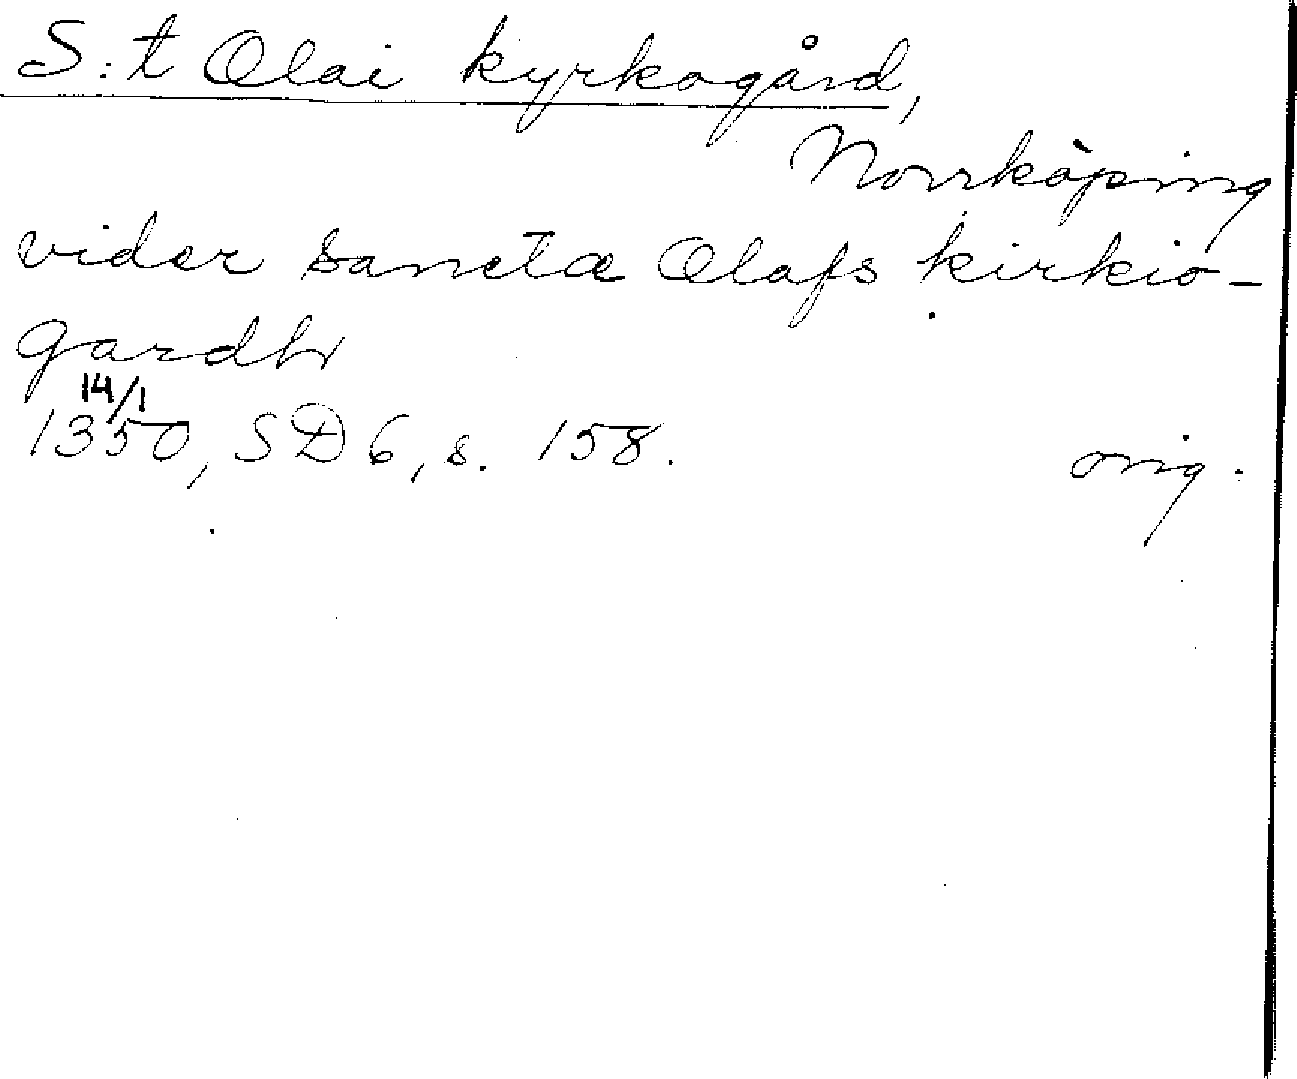 S:t Olai kyrkogård,
Norrköping
vider sanctæ Olafs kirkio-
gardh
14/1
1350, SD 6, s. 158.
orig.